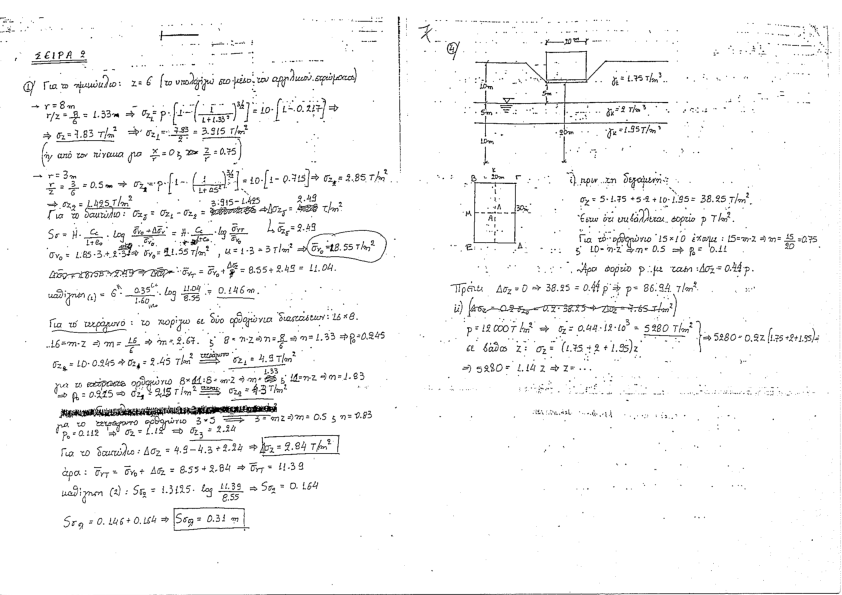 ΣΕΙΡΑ 2
① Για το ημικύκλιο: z=6 (το υπολογίζω στο μέσο του αργιλικού στρώματος)
→ r=8m
r/z = 8/6 = 1.33m ⇒ σz₁ = p·[1-(1/(1+1.33²))^3/2] = 10·[1-0.217] ⇒
⇒ σz = 7.83 T/m² ⇒ σz₁ = 7.83/2 = 3.915 T/m²
(ή από τον πίνακα για x/r = 0 & z/r = 0.75)
→ r=3m
r/z = 3/6 = 0.5m ⇒ σz = p·[1-(1/(1+0.5²))^3/2] = 10·[1-0.715] ⇒ σz₂ = 2.85 T/m²
⇒ σz₂ = 1.425 T/m²
Για το δακτύλιο: σzδ = σz₁ - σz₂ = 3.915-1.425 2.49 T/m²
Sσ = H· Cc/(1+e₀) · log (σ̄v₀+Δσz)/σ̄v₀ = H· Cc/(1+e₀) · log σ̄vτ/σ̄v₀ σzδ = 2.49
, u = 1·3 = 3 T/m² ⇒ σ̄v₀ = 8.55 T/m²
σ̄vτ = σ̄v₀ + Δσz = 8.55 + 2.49 = 11.04.
καθίζηση (1) = 6· 0.35/1.60 · log 11.04/8.55 = 0.146 m.
Για το τετράγωνο: το χωρίζω σε δύο ορθογώνια διαστάσεων: 16×8.
16=m·z ⇒ m = 16/6 ⇒ m = 2.67. & 8=n·z ⇒ n = 8/6 ⇒ n = 1.33 ⇒ p₀=0.245
= 10·0.245 ⇒ = 2.45 T/m² σz₁ = 4.9 T/m²
για το ορθογώνιο 8×11: 8=m·z ⇒ m = 1.33 & 11=n·z ⇒ n = 1.83
⇒ p₀ = 0.215 ⇒ 2.15 T/m² 4.3 T/m²
για το τετράγωνο ορθογώνιο 3×5 3 = m·z ⇒ m = 0.5 & n = 0.83
p₀ = 0.112 ⇒ σz = 1.12 ⇒ σz₃ = 2.24
Για το δακτύλιο: Δσz = 4.9 - 4.3 + 2.24 ⇒ Δσz = 2.84 T/m²
άρα: σ̄vτ = σ̄v₀ + Δσz = 8.55 + 2.84 ⇒ σ̄vτ = 11.39
καθίζηση (2): Sσ₂ = 1.3125· log 11.39/8.55 ⇒ Sσ₂ = 0.164
= 0.146 + 0.164 ⇒ = 0.31 m
④
20m
10m
5m
γε = 1.75 T/m³
5m
γκ = 2 T/m³
10m
20m
γκ = 1.95 T/m³
B 20m Γ
M A 30m
E Δ
i) πριν τη δεξαμενή:
σz = 5·1.75 + 5·2 + 10·1.95 = 38.25 T/m².
Έστω ότι επιβάλλεται φορτίο p T/m².
Για το ορθογώνιο 15×10 έχουμε: 15=m·z ⇒ m = 15/20 = 0.75
& 10=n·z ⇒ n = 0.5 ⇒ p₀ = 0.11
Άρα φορτίο p με τάση: Δσz = 0.44p.
Πρέπει Δσz = 0 ⇒ 38.25 = 0.44p ⇒ p = 86.94 T/m².
ii) (Δσz = 0.2·σz = 0.2·38.25 ⇒ Δσz = 7.65 T/m²)
p = 12000 T/m² ⇒ σz = 0.44·12·10³ = 5280 T/m²
σε βάθος z: σz = (1.75+2+1.95)z
⇒ 5280 = 0.2z(1.75+2+1.95)
⇒ 5280 = 1.14 z ⇒ z = ...